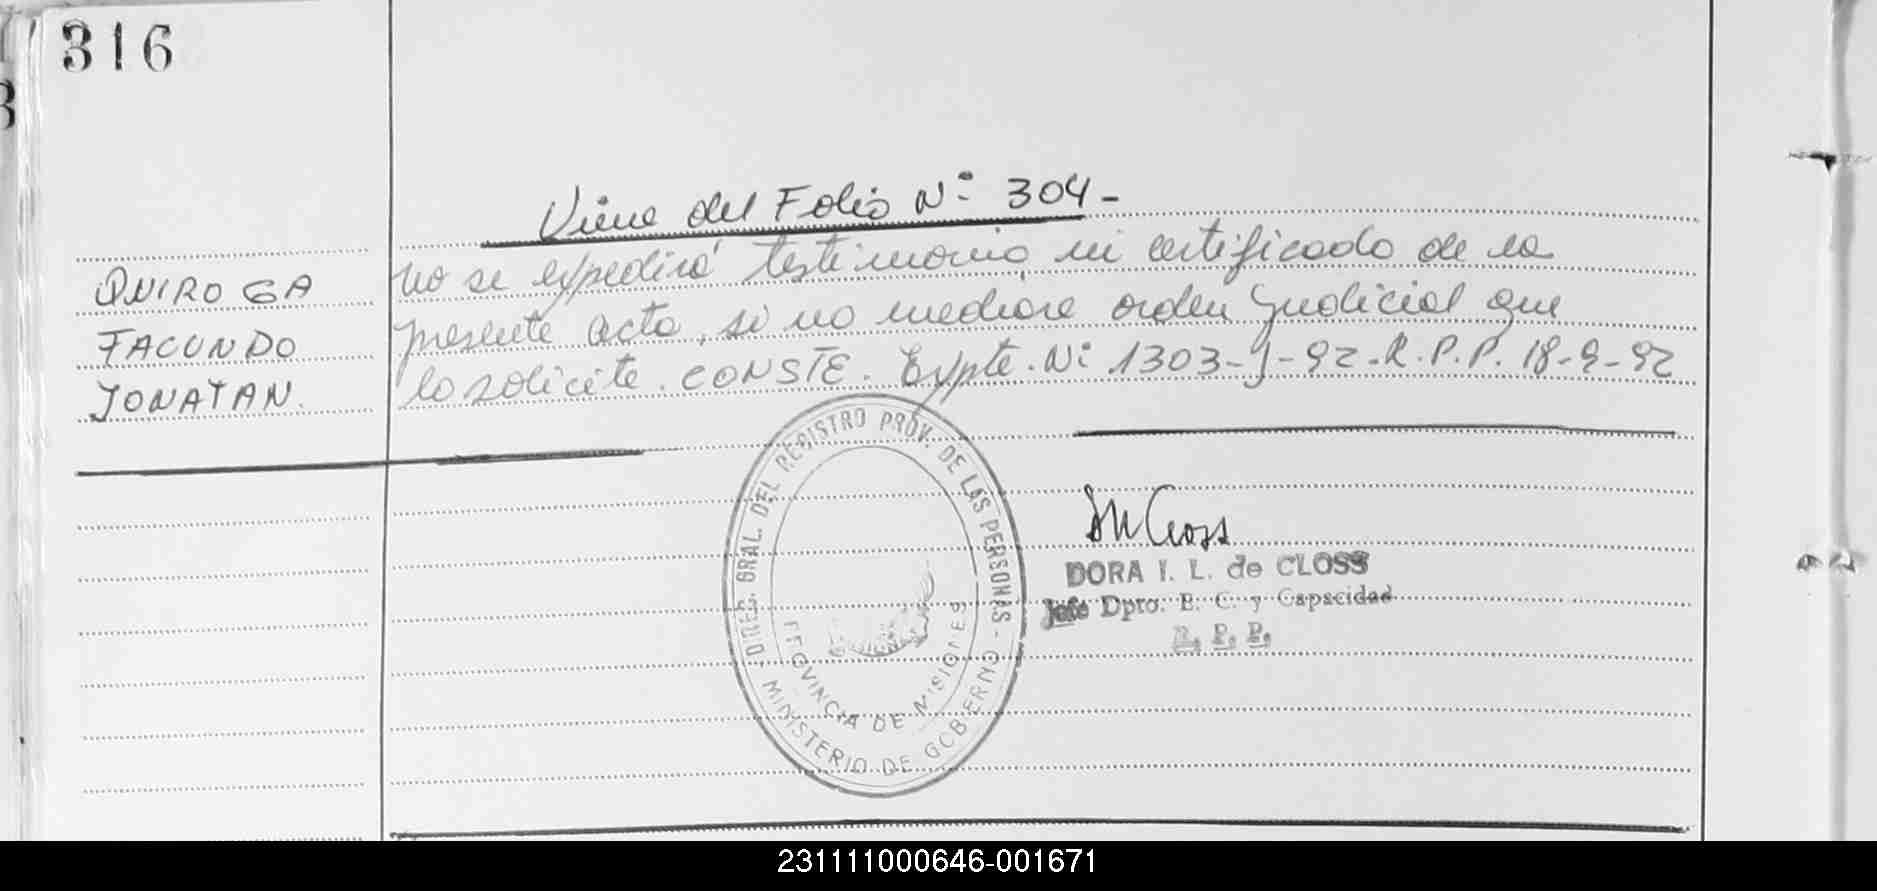 316
Viene del Folio Nº 304-
QUIROGA
FACUNDO
JONATAN.
no se expedirá testimonio, ni certificado de la
presente acta, si no mediare orden Judicial que
lo solicite. CONSTE. Expte. Nº 1303-J-92-R.P.P. 18-9-92
DIREC. GRAL. DEL REGISTRO PROV. DE LAS PERSONAS -
MINISTERIO DE GOBIERNO
PROVINCIA DE MISIONES
DORA I. L. de CLOSS
Jefe Dpto. E. C. y Capacidad
R. P. P.
231111000646-001671